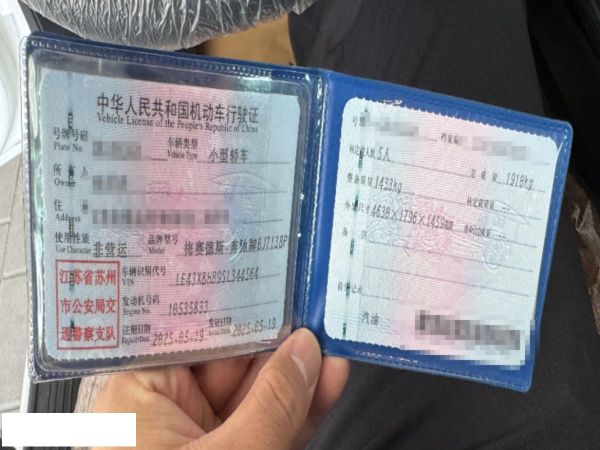 中华人民共和国机动车行驶证
Vehicle License of the People's Republic of China
号牌号码
Plate No
车辆类型
Vehicle Type
小型轿车
所 有 人
Owner
住
Address
使用性质
Use Character
非营运
品牌型号
Model
梅赛德斯-奔驰牌BJ7138P
江苏省苏州
市公安局交
通警察支队
车辆识别代号
VIN
发动机号码
Engine No.
10535833
注册日期
Register Date
2025-05-19
发证日期
Issue Date
2025-05-19
号
档案编
核定载人数 5人
总 质 量 1918kg
整备质量 1433kg
核定载质量 --
外廓尺寸 4638×1796×1459mm
备 注
检验记录
汽油